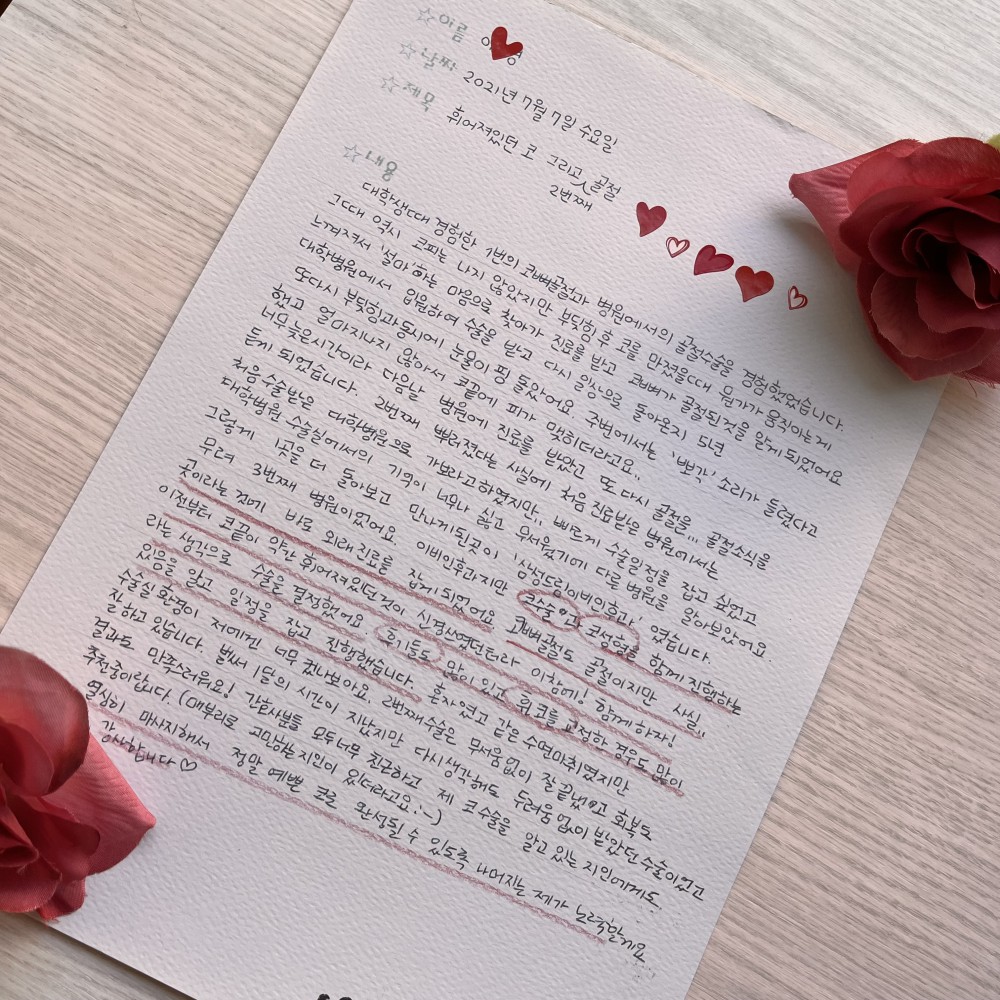 ☆이름
☆날짜 2021년 7월 7일 수요일
☆제목 휘어져있던 코 그리고 골절
2번째
☆내용
대학생때 경험한 1번의 코뼈골절과 병원에서의 골절수술을 경험했었습니다.
그때 역시 코피는 나지 않았지만 부딪힘 후 코를 만졌을때 뭔가가 움직이는게
느껴져서 '설마'하는 마음으로 찾아가 진료를 받고 코뼈가 골절된것을 알게되었어요
대학병원에서 입원하여 수술을 받고 다시 일상으로 돌아온지 5년
또다시 부딪힘과 동시에 눈물이 핑 돌았어요. 주변에서는 '뽀각' 소리가 들렸다고
했고 얼마지나지 않아서 코끝에 피가 맺히더라고요..
너무 늦은시간이라 다음날 병원에 진료를 받았고 또 다시 골절을... 골절소식을
듣게 되었습니다. 2번째 뿌러졌다는 사실에 처음 진료받은 병원에서는
처음 수술받은 대학병원으로 가보라고하였지만.. 빠르게 수술일정을 잡고 싶었고
대학병원 수술실에서의 기억이 너무나 싫고 무서웠기에 다른 병원을 알아보았어요.
그렇게 1곳을 더 돌아보고 만나게된곳이 '삼성드림이비인후과' 였습니다.
무려 3번째 병원이었어요. 이비인후과지만 코수술 있고 코성형을 함께 진행하는
곳이라는 점에 바로 외래진료를 잡게 되었어요 코뼈골절도 골절이지만 사실..
이전부터 코끝이 약간 휘어져있던것이 신경쓰였던터라 이참에! 함께하자!
라는 생각으로 수술을 결정했어요 후기들도 많이 있고 휜코를 교정하 경우도 많이
있음을 알고 일정을 잡고 진행했습니다. 혼자였고 같은 수면마취였지만
수술실 환경이 저에겐 너무 컸나보아요. 2번째수술은 무서움없이 잘 끝냈고 회복도
잘 하고 있습니다. 벌써 1달의 시간이 지났지만 다시생각해도 두려움 없이 받았던 수술이었고
결과도 만족스러워요! 간호사분들 모두너무 친근하고 제 코수술을 알고 있는 지인에게도
추천중이랍니다. (매부리로 고민하는지인이 있더라고요:-)
열심히 마사지해서 정말 예쁜 코로 완성될 수 있도록 나머지는 제가 노력할게요
감사합니다♡